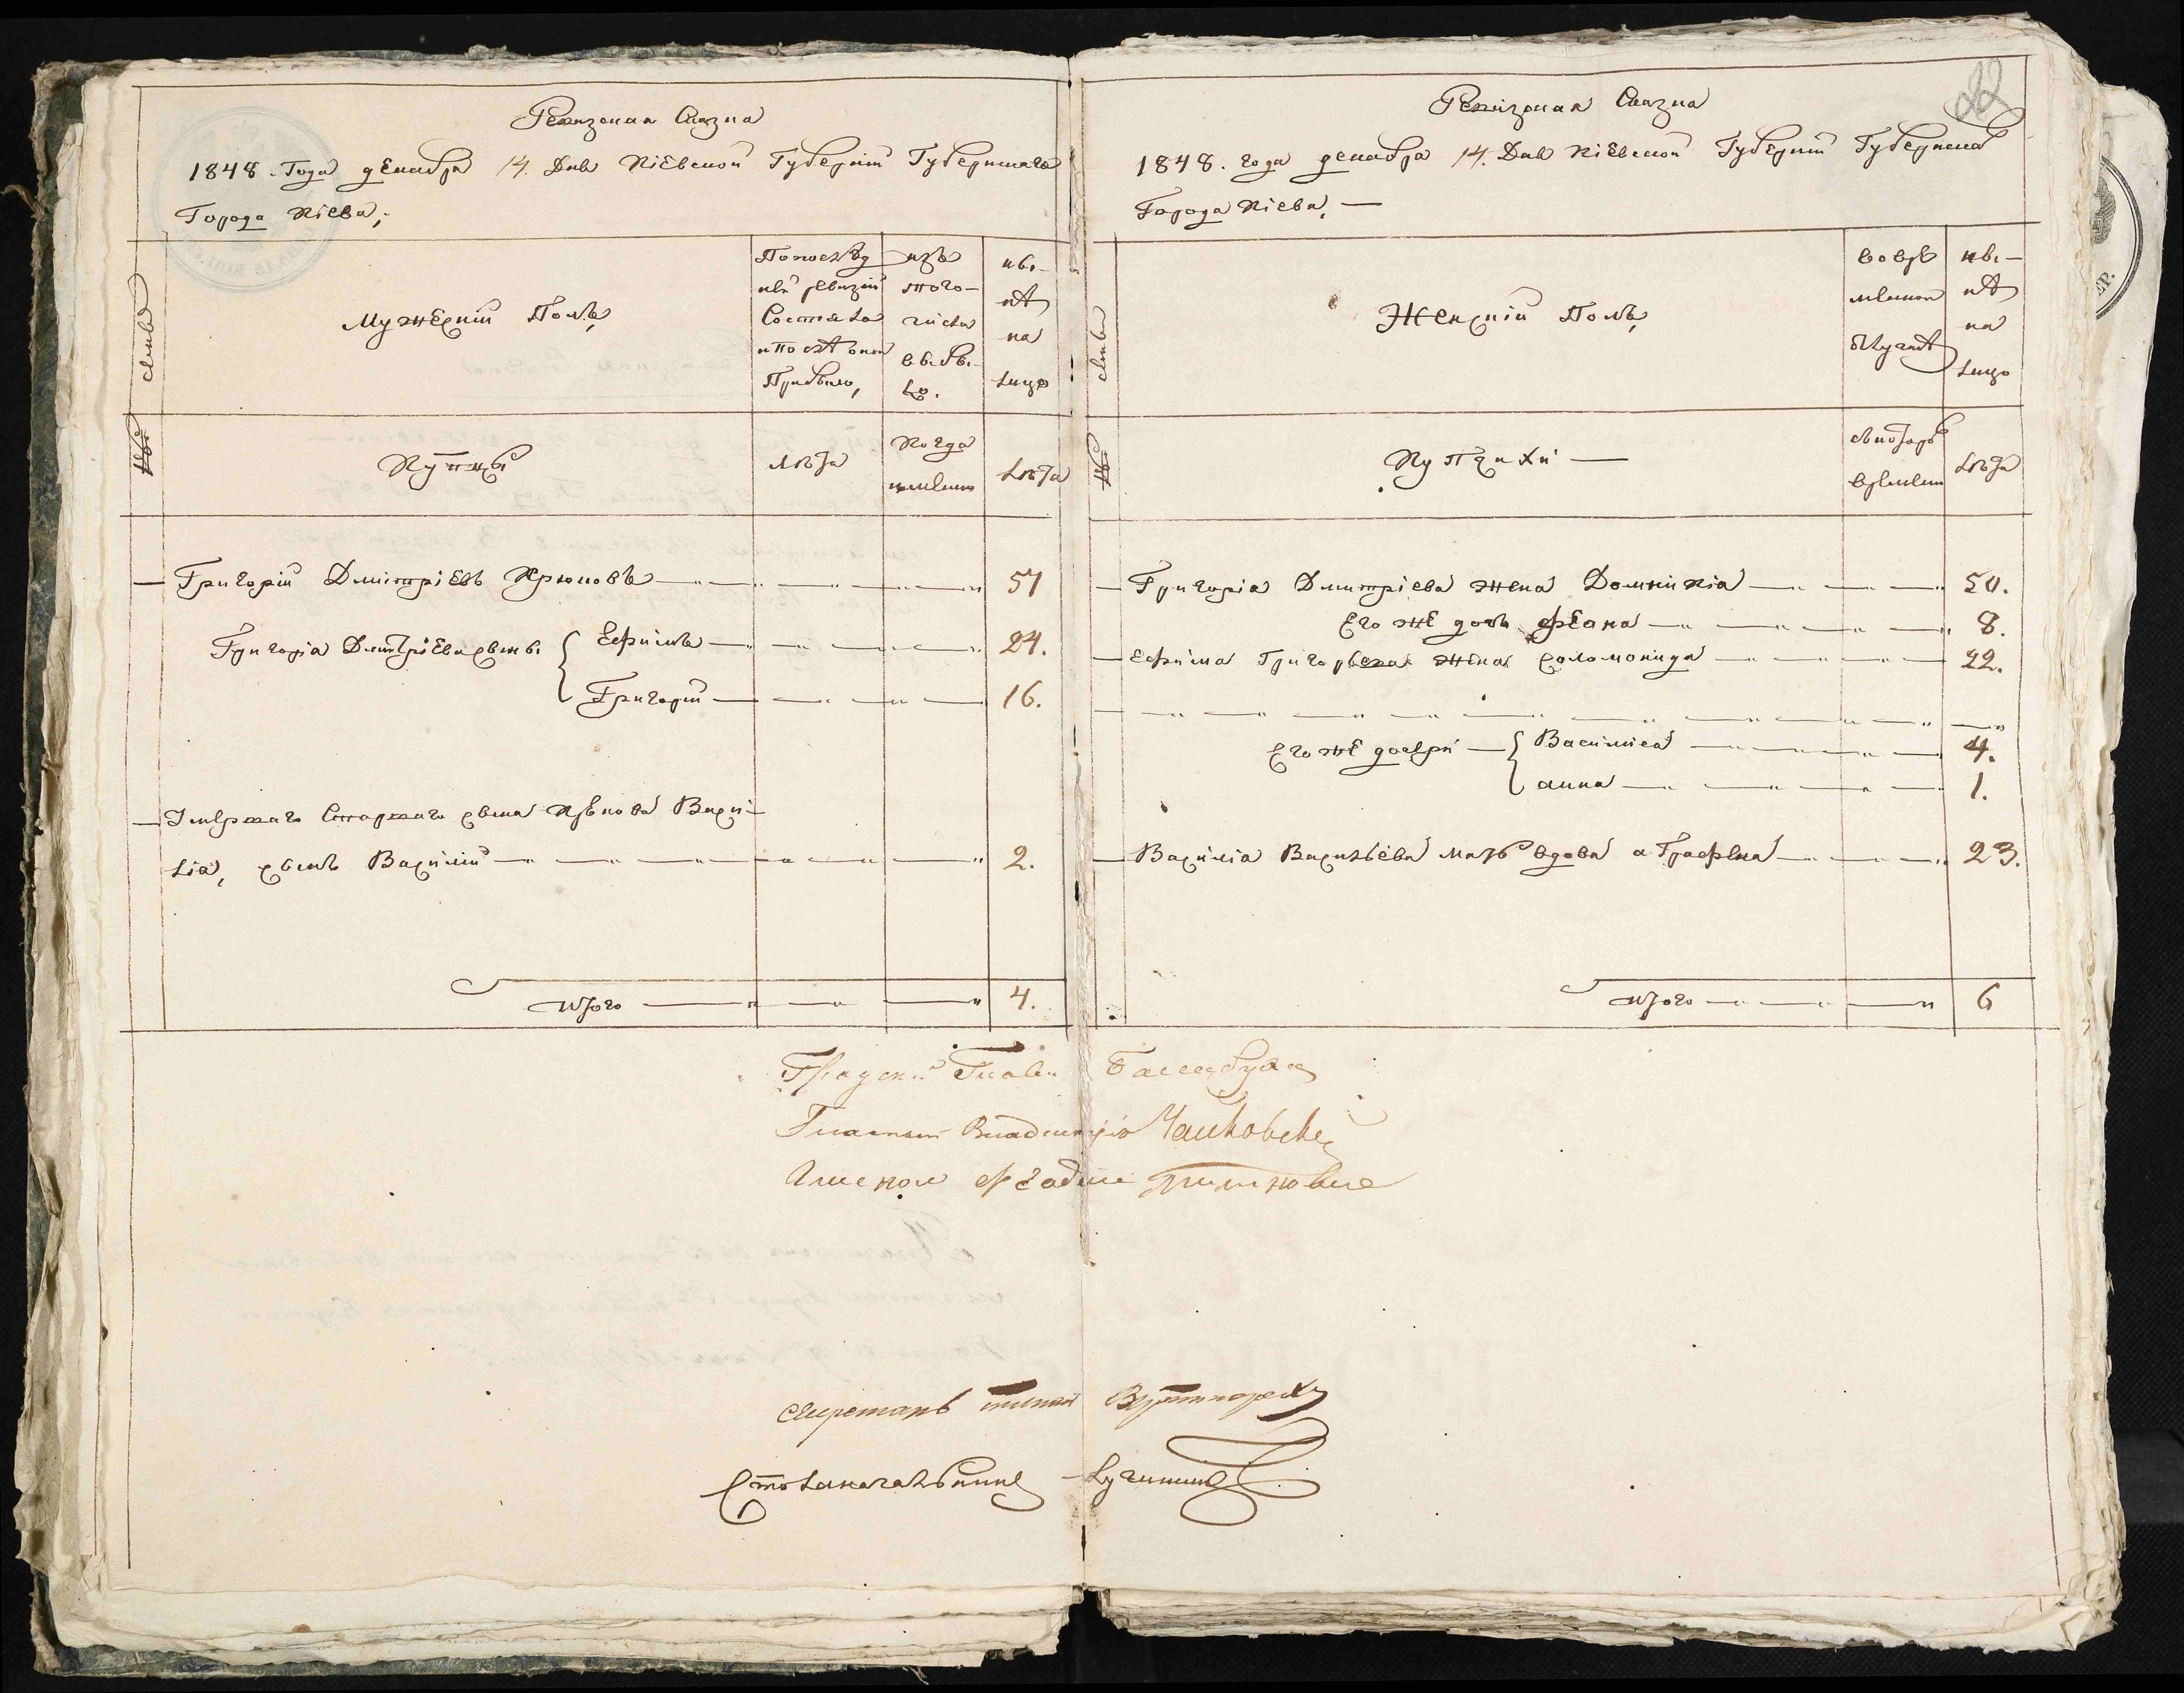 Ревизская Сказка
1848. Года декабря 14. Дня Кіевской Губерніи Губернскаго
Города Кіева,
Мужескій Полъ,
По послѣд
ней ревизіи
Состояло
и послѣ оной
Прибыло,
изъ
того
числа
выбы
ло.
ны-
нѣ
на
лицо
семьи
№
Купцы
лѣта
Когда
именно
лѣта
Григорій Дмитріевъ Крюковъ 57
Григорія Дмитріева сыны Ефимъ 24.
Григорій 16.
Умершаго Старшаго сына Крюкова Васи-
лія, сынъ Василій 2.
итого 4.
22
Ревизская Сказка
1848. года декабря 14. Дня Кіевской Губерніи Губернска
Города Кіева,
семьи
Женскій Полъ,
во вре
менной
отлучкѣ
ны-
нѣ
на
лицо
№
Купчихи
съ котораго
времени
лѣта
Григорія Дмитріева жена Домникія 50.
Его же дочь Фекла 8.
Ефима Григорьева жена Соломонида 22.
Его же дочери Василиса 4.
анна 1.
Василія Васильева мать вдова аграфена 23.
итого 6
Градскій Глава
Гласный Владимиръ Чайковскій
Гласной
Секретарь
Столоначальникъ Лучинин